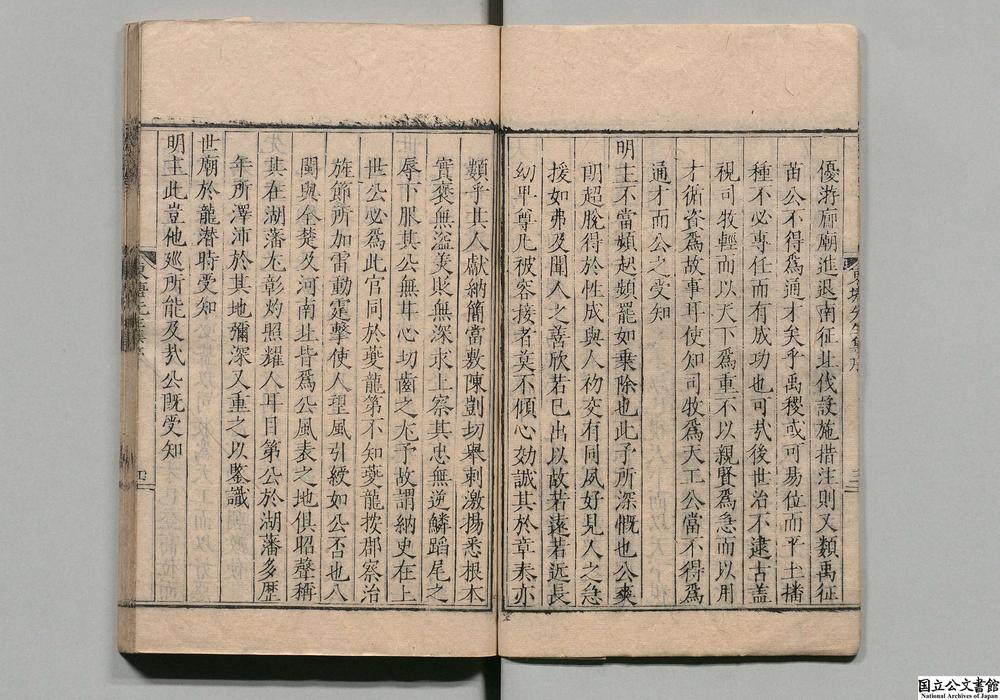 優游廊廟進退南征北伐設施措注則又類禹征
苗公不得爲通才矣乎禹稷或可易位而平土播
種不必專任而有成功也可㢤後世治不逮古盖
視司牧輕而以天下爲重不以親賢爲急而以用
才循資爲故事耳使知司牧爲天工公當不得爲
通才而公之受知
明主不當頻起頻罷如乗除也此予所深慨也公爽
朗超脫得於性成與人初交有同夙好見人之急
援如弗及聞人之善欣若已出以故若遠若近長
幼卑尊凢被容接者莫不傾心効誠其於章奏亦
類乎其人獻納簡當敷陳剴切舉刺激揚悉根本
實褒無溢美貶無深求上察其忠無逆鱗蹈尾之
辱下服其公無耳心切齒之尤予故謂納史在上
世公必爲此官同於䕫龍第不知䕫龍按郡察治
旌節所加雷動霆擊使人望風引綬如公否也八
閩與全楚及河南北皆爲公風表之地俱昭聲稱
其在湖藩尤彰灼照耀人耳目第公於湖藩多歷
年所澤沛於其地彌深又重之以鑒識
世廟於龍潜時受知
明主此豈他廵所能及㢤公既受知
国立公文書館
National Archives of Japan